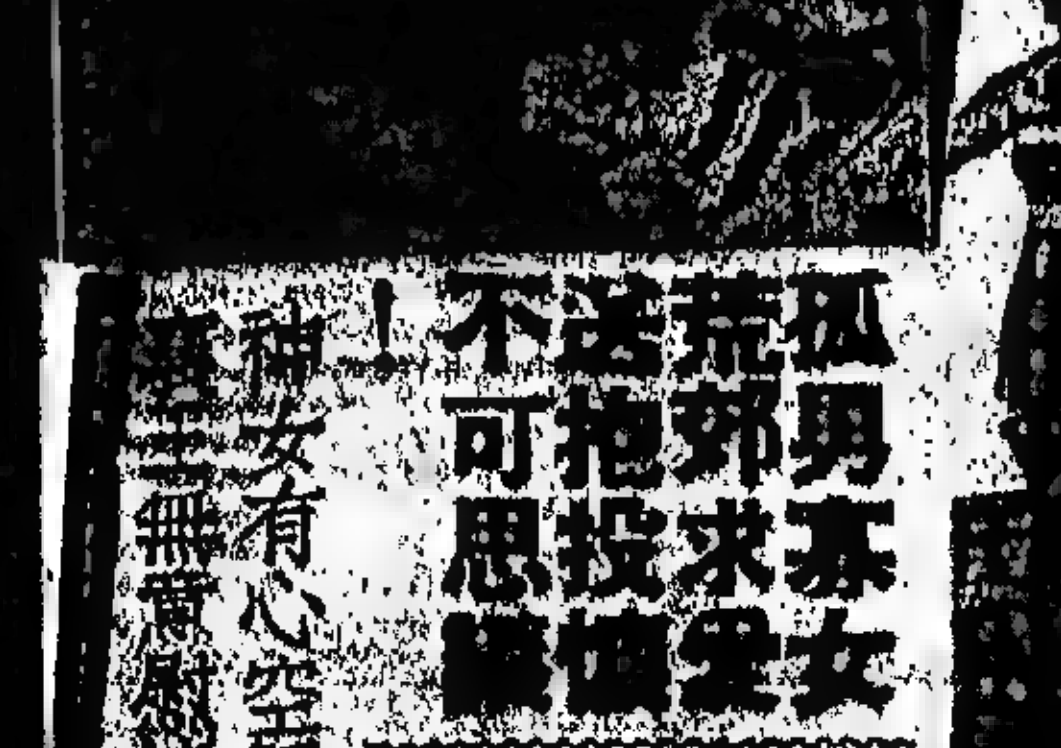 孤男寡女
荒郊求
送抱投懷
不可思議
!
神女有心空
襄王無